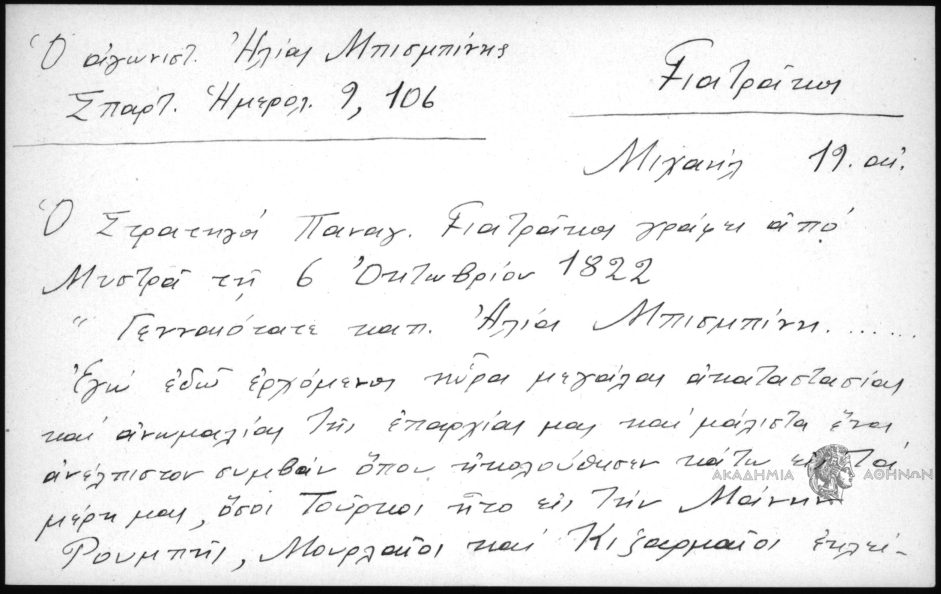 Ὁ ἀγωνιστ. Ἠλίας Μπισμπίνης
Σπαρτ. Ἡμερολ. 9, 106
Γιατρᾶκος
Μιχαήλ 19. οκ.
Ὁ Στρατηγός Παναγ. Γιατρᾶκος γράφει ἀπό
Μυστρᾶ τῇ 6 Ὀκτωβρίου 1822
" Γενναιότατε καπ. Ἠλία Μπισμπίνη.......
Ἐγώ ἐδῶ ἐρχόμενος ηὗρα μεγάλας ἀκαταστασίας
καί ἀνωμαλίας τῆς ἐπαρχίας μας καί μάλιστα ἕνα
ἀνέλπιστον συμβάν ὅπου ἠκολούθησεν κάτω εἰς τά
μέρη μας, ὅσοι Τοῦρκοι ἦτο εἰς τήν Μάνην
Ρουμπῆς, Μουρλαῖοι καί Κιζαρμαῖοι ἐκλεί-
ΑΚΑΔΗΜΙΑ ΑΘΗΝΩΝ